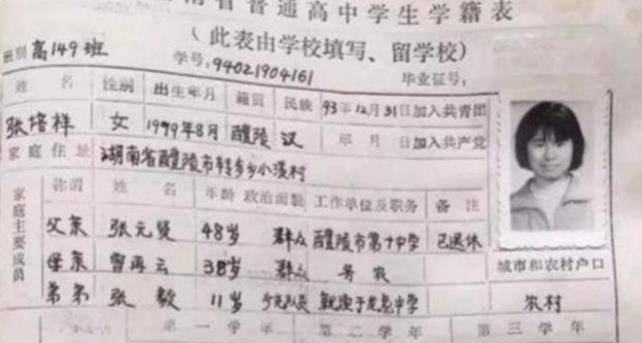 南省普通高中学生学籍表
(此表由学校填写、留学校)
班别 高149班 学号:94021904161 毕业证号:
姓名 性别 出生年月 籍贯 民族 93年12月31日加入共青团
张培祥 女 1979年8月 醴陵 汉 年 月 日加入共产党
家庭住址 湖南省醴陵市转步乡小溪村
家庭主要成员
称谓 姓名 年龄 政治面貌 工作单位及职务 备注
父亲 张元贤 48岁 群众 醴陵市第十中学 已退休
母亲 曾再云 38岁 群众 务农
弟弟 张毅 11岁 少先队员 就读于 中学
城市和农村户口
农村
第一学年 第二学年 第三学年